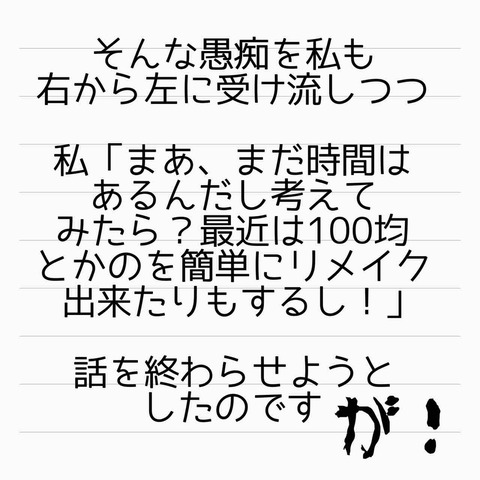 そんな愚痴を私も
右から左に受け流しつつ
私「まあ、まだ時間は
あるんだし考えて
みたら？最近は100均
とかのを簡単にリメイク
出来たりもするし！」
話を終わらせようと
したのですが！